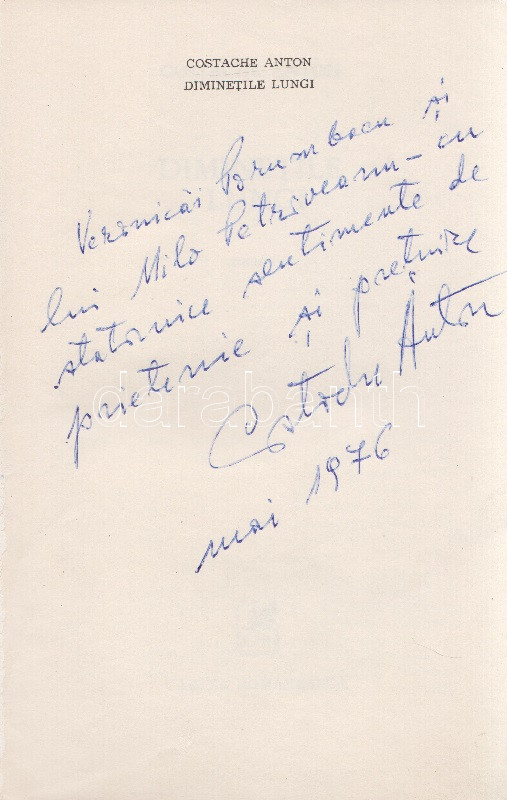 COSTACHE ANTON
DIMINEȚILE LUNGI
Veronicăi Porumbacu și
lui Milo Petroveanu - cu
statornice sentimente de
prietenie și prețuire
Costache Anton
mai 1976
darabanth